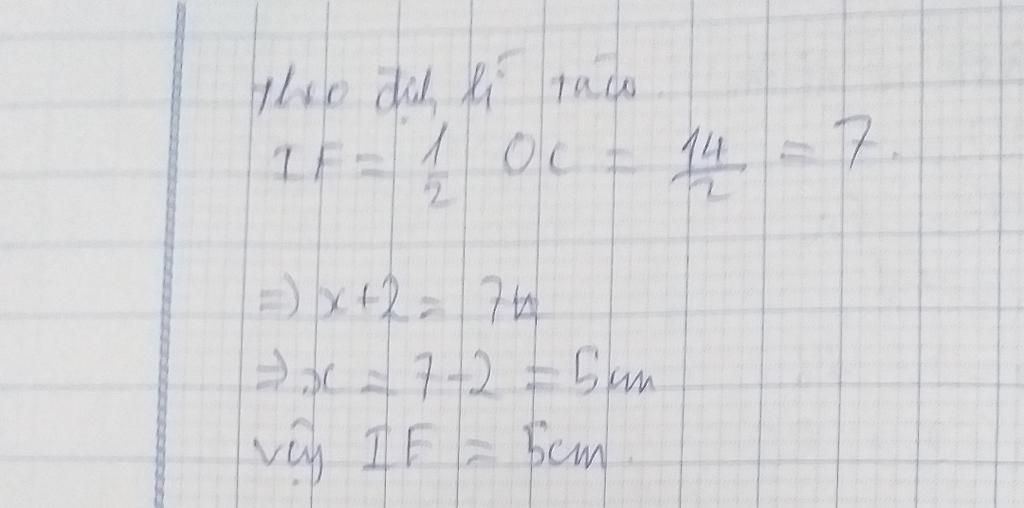 theo định lí
IF = 1/2 OC = 14/2 = 7.
=> x+2 = 7
=> x = 7-2 = 5cm
vậy IF = 5cm.